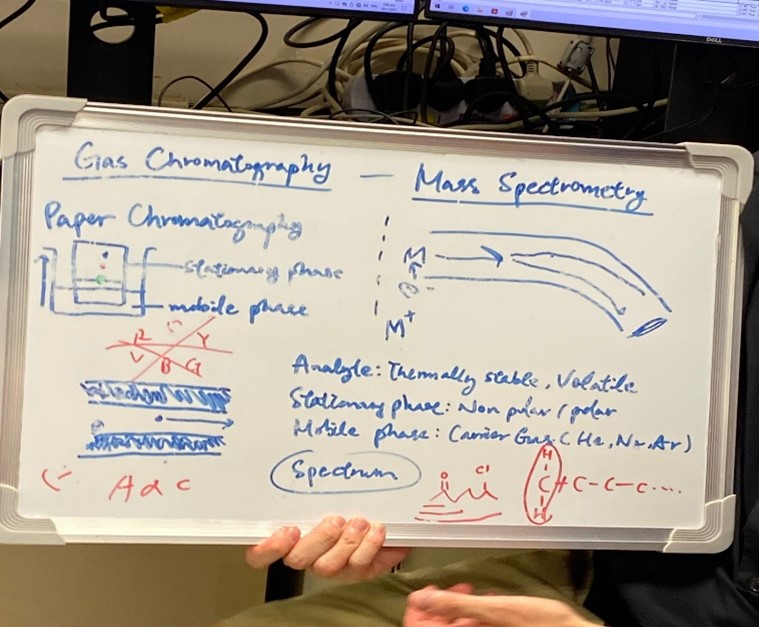 Gas Chromatography — Mass Spectrometry
Paper Chromatography
stationary phase
mobile phase
R C Y
V B G
M
e-
M+
Analyte: Thermally stable, Volatile
Stationary phase: Non polar / polar
Mobile phase: Carrier Gas (He, N2, Ar)
Spectrum
A α C
O Cl
H
C + C - C - C ....
H
DELL